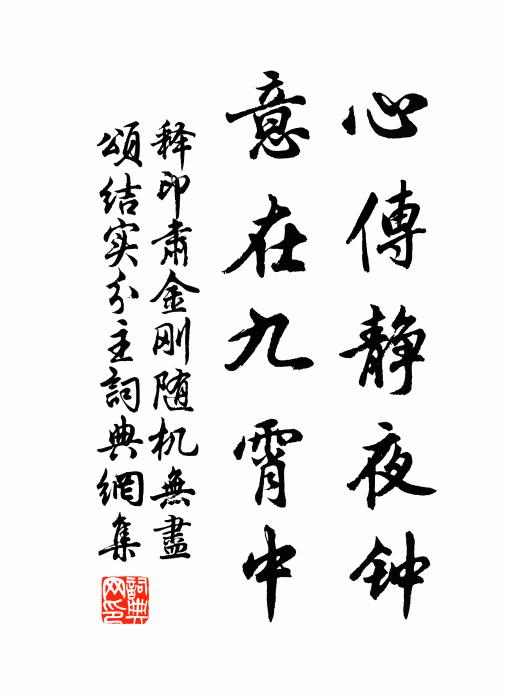 心傳静夜钟
意在九霄中
释印肃金刚随机無盡
頌结实分主詞典網集
詞典網印